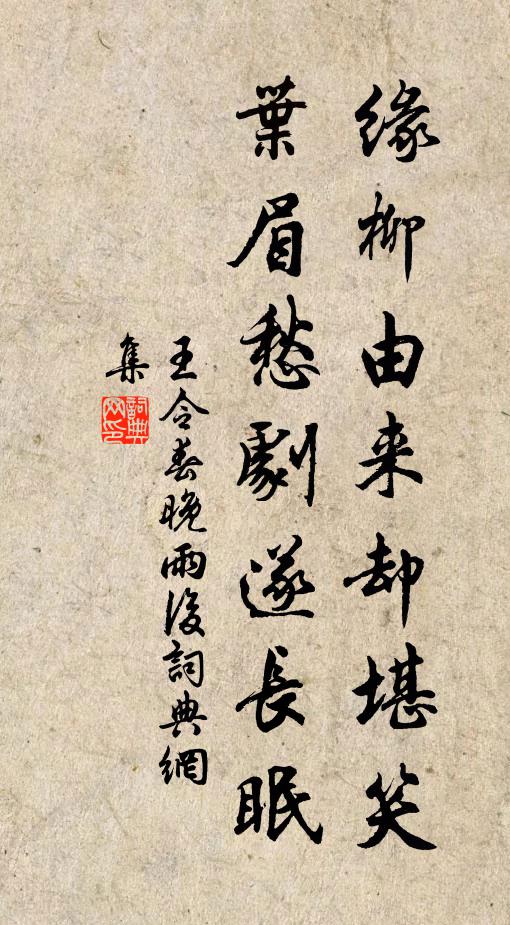 緣柳由来却堪笑
葉眉愁劇遂長眠
王令春晚雨後詞典網
集
詞典网印